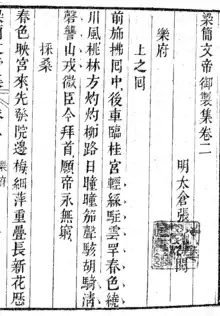 梁簡文帝御製集卷二
明太倉張
閱
樂府
上之囘
前施拂囘中後車臨桂宮輕絲駐雲罕春色繞
川風桃林方灼灼柳路日曈曈笳聲駭胡騎清
磬讋山戎微臣今拜首願帝永無窮
採桑
春色映空來先發院邊梅細萍重疊長新花歷